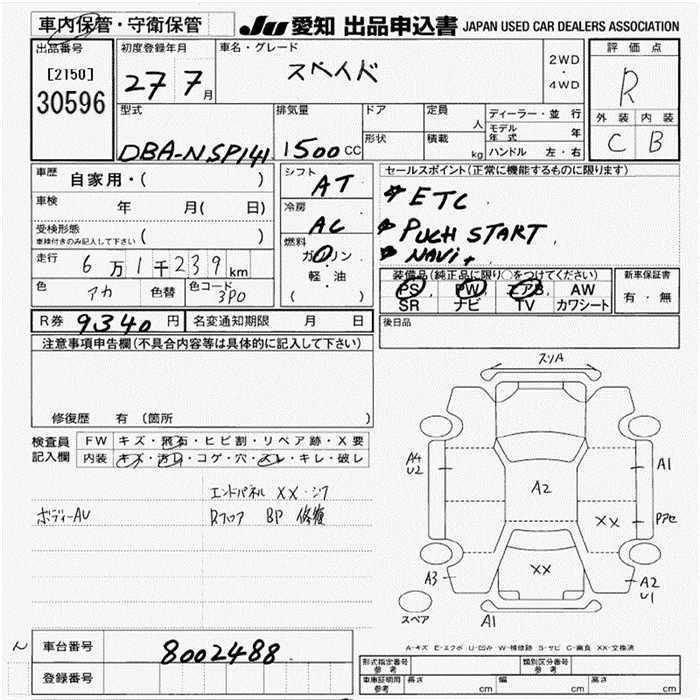 車内保管・守衛保管 JU 愛知 出品申込書 JAPAN USED CAR DEALERS ASSOCIATION
出品番号 初度登録年月 車名・グレード 評価点
[2150] 27 7月 スペイド 2WD・4WD R
30596
型式 排気量 ドア 定員 人 ディーラー・並行 外装 内装
形状 積載 kg モデル年式 年 C B
DBA-NSP141 1500cc ハンドル 左・右
車歴 自家用・( ) シフト AT セールスポイント(正常に機能するものに限ります)
車検 年 月( 日) 冷房 AC ETC
受検形態 車検付きのみ記入して下さい ( ) 燃料 PUCH START
走行 6万1千239km ガソリン・軽・油 ( ) NAVi+
色 アカ 色替 色コード 3P0 装備品(純正品に限り○をつけてください) 新車保証書
PS PW エアB AW 有・無
SR ナビ TV カワシート
R券 9340円 名変通知期限 月 日 後日品
注意事項申告欄(不具合内容等は具体的に記入して下さい)
修復歴 有 (箇所 )
検査員記入欄 FW キズ・飛石・ヒビ割・リペア跡・X要
内装 キズ・汚レ・コゲ・穴・スレ・キレ・破レ
エンドパネル XX・シワ
ボディーAU Rフロア BP 修復
スリA
A4 U2 A1
A2
XX Pアセ
XX
A3 A2 U1
スペア A1
A-キズ E-エクボ U-凹み W-補修跡 S-サビ C-腐食 XX-交換済
車台番号 8002488
登録番号
形式指定番号 参考 類別区分番号 参考
車庫証明用 参考 長さ cm 幅 cm 高さ cm